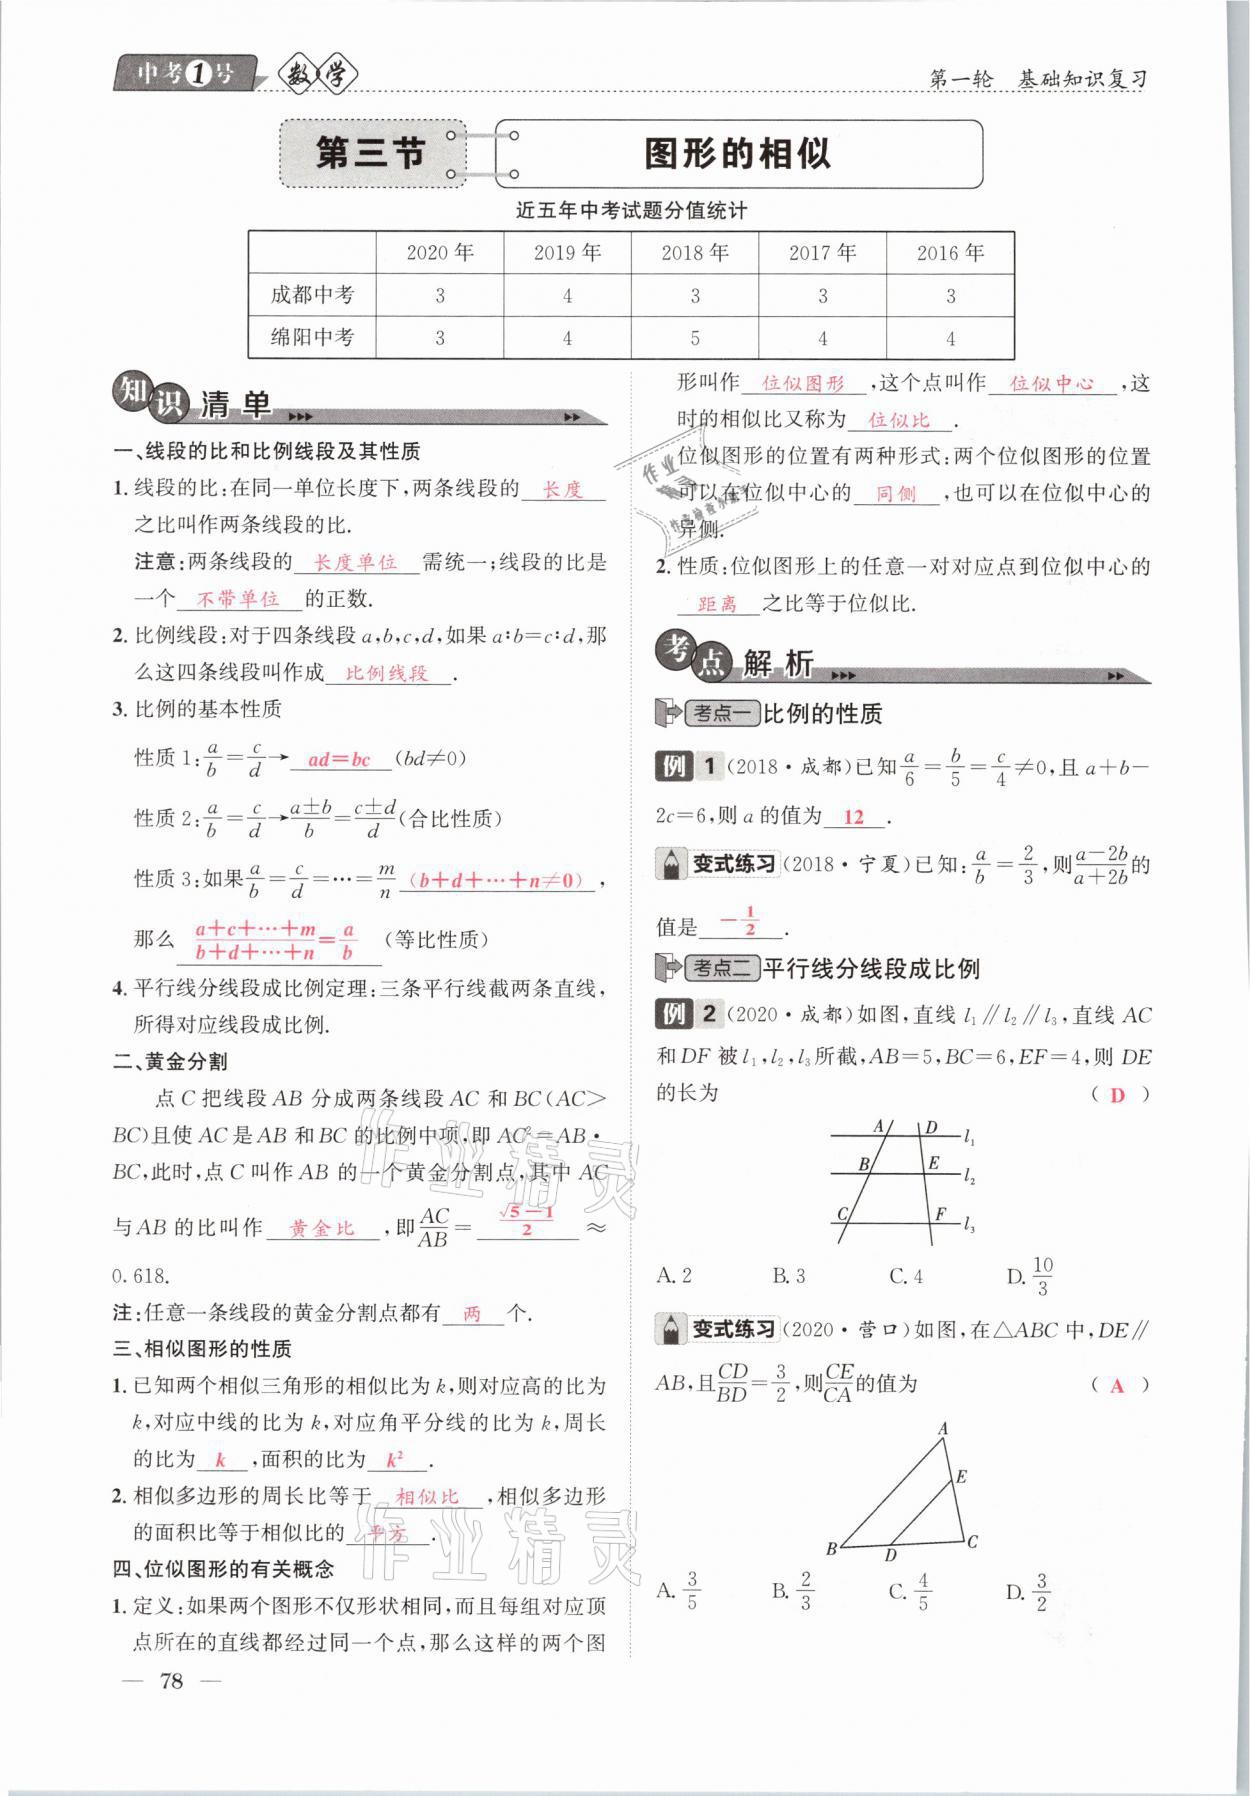 中考1号 数学
第一轮 基础知识复习
第三节 图形的相似
近五年中考试题分值统计
2020年 2019年 2018年 2017年 2016年
成都中考 3 4 3 3 3
绵阳中考 3 4 5 4 4
知识清单
一、线段的比和比例线段及其性质
1. 线段的比:在同一单位长度下,两条线段的 长度
之比叫作两条线段的比.
注意:两条线段的 长度单位 需统一;线段的比是
一个 不带单位 的正数.
2. 比例线段:对于四条线段 a,b,c,d,如果 a∶b=c∶d,那
么这四条线段叫作成 比例线段 .
3. 比例的基本性质
性质 1:a/b=c/d→ ad=bc (bd≠0)
性质 2:a/b=c/d→(a±b)/b=(c±d)/d(合比性质)
性质 3:如果a/b=c/d=…=m/n (b+d+…+n≠0) ,
那么 (a+c+…+m)/(b+d+…+n)=a/b (等比性质)
4. 平行线分线段成比例定理:三条平行线截两条直线,
所得对应线段成比例.
二、黄金分割
点 C 把线段 AB 分成两条线段 AC 和 BC(AC>
BC)且使 AC 是 AB 和 BC 的比例中项,即 AC²=AB·
BC,此时,点 C 叫作 AB 的一个黄金分割点,其中 AC
与 AB 的比叫作 黄金比 ,即AC/AB= (√5-1)/2 ≈
0.618.
注:任意一条线段的黄金分割点都有 两 个.
三、相似图形的性质
1. 已知两个相似三角形的相似比为 k,则对应高的比为
k,对应中线的比为 k,对应角平分线的比为 k,周长
的比为 k ,面积的比为 k² .
2. 相似多边形的周长比等于 相似比 ,相似多边形
的面积比等于相似比的 平方 .
四、位似图形的有关概念
1. 定义:如果两个图形不仅形状相同,而且每组对应顶
点所在的直线都经过同一个点,那么这样的两个图
— 78 —
形叫作 位似图形 ,这个点叫作 位似中心 ,这
时的相似比又称为 位似比 .
位似图形的位置有两种形式:两个位似图形的位置
可以在位似中心的 同侧 ,也可以在位似中心的
异侧.
2. 性质:位似图形上的任意一对对应点到位似中心的
距离 之比等于位似比.
考点解析
考点一 比例的性质
例 1 (2018·成都)已知a/6=b/5=c/4≠0,且 a+b-
2c=6,则 a 的值为 12 .
变式练习 (2018·宁夏)已知:a/b=2/3,则(a-2b)/(a+2b)的
值是 -1/2 .
考点二 平行线分线段成比例
例 2 (2020·成都)如图,直线 l₁∥l₂∥l₃,直线 AC
和 DF 被 l₁,l₂,l₃所截,AB=5,BC=6,EF=4,则 DE
的长为 ( D )
A D l₁
B E l₂
C F l₃
A. 2 B. 3 C. 4 D. 10/3
变式练习 (2020·营口)如图,在△ABC 中,DE∥
AB,且CD/BD=3/2,则CE/CA的值为 ( A )
A
E
B D C
A. 3/5 B. 2/3 C. 4/5 D. 3/2
作业精灵
作业精灵
作业